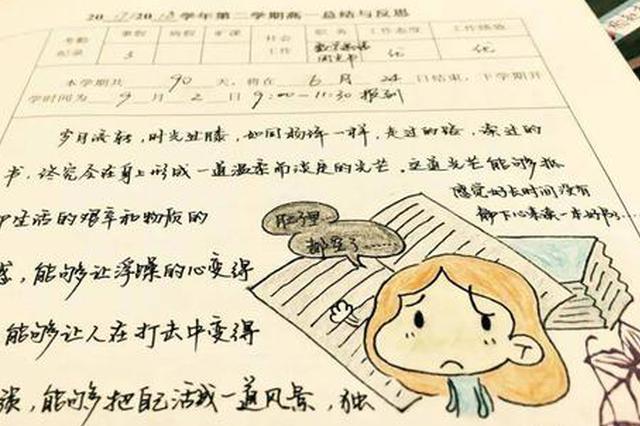 2017/2018学年第二学期高一总结与反思
考勤纪录 事假 病假 旷课 社会工作 职务 工作态度 工作绩效
3 优 优
本学期共 90 天,将在 6 月 24 日结束,下学期开
学时间为 9 月 2 日 9:00-11:30 报到
岁月流转,时光过膝,如同杨绛一样,走过的路,读过的
书,终究会在身上形成一道温柔而淡定的光芒。这道光芒能够抵
感觉好长时间没有
静下心来读一本好书……
生活的艰辛和物质的
肚子里
都空了……
感,能够让浮躁的心变得
能够让人在打击中变得
能够把自己活成一道风景,独